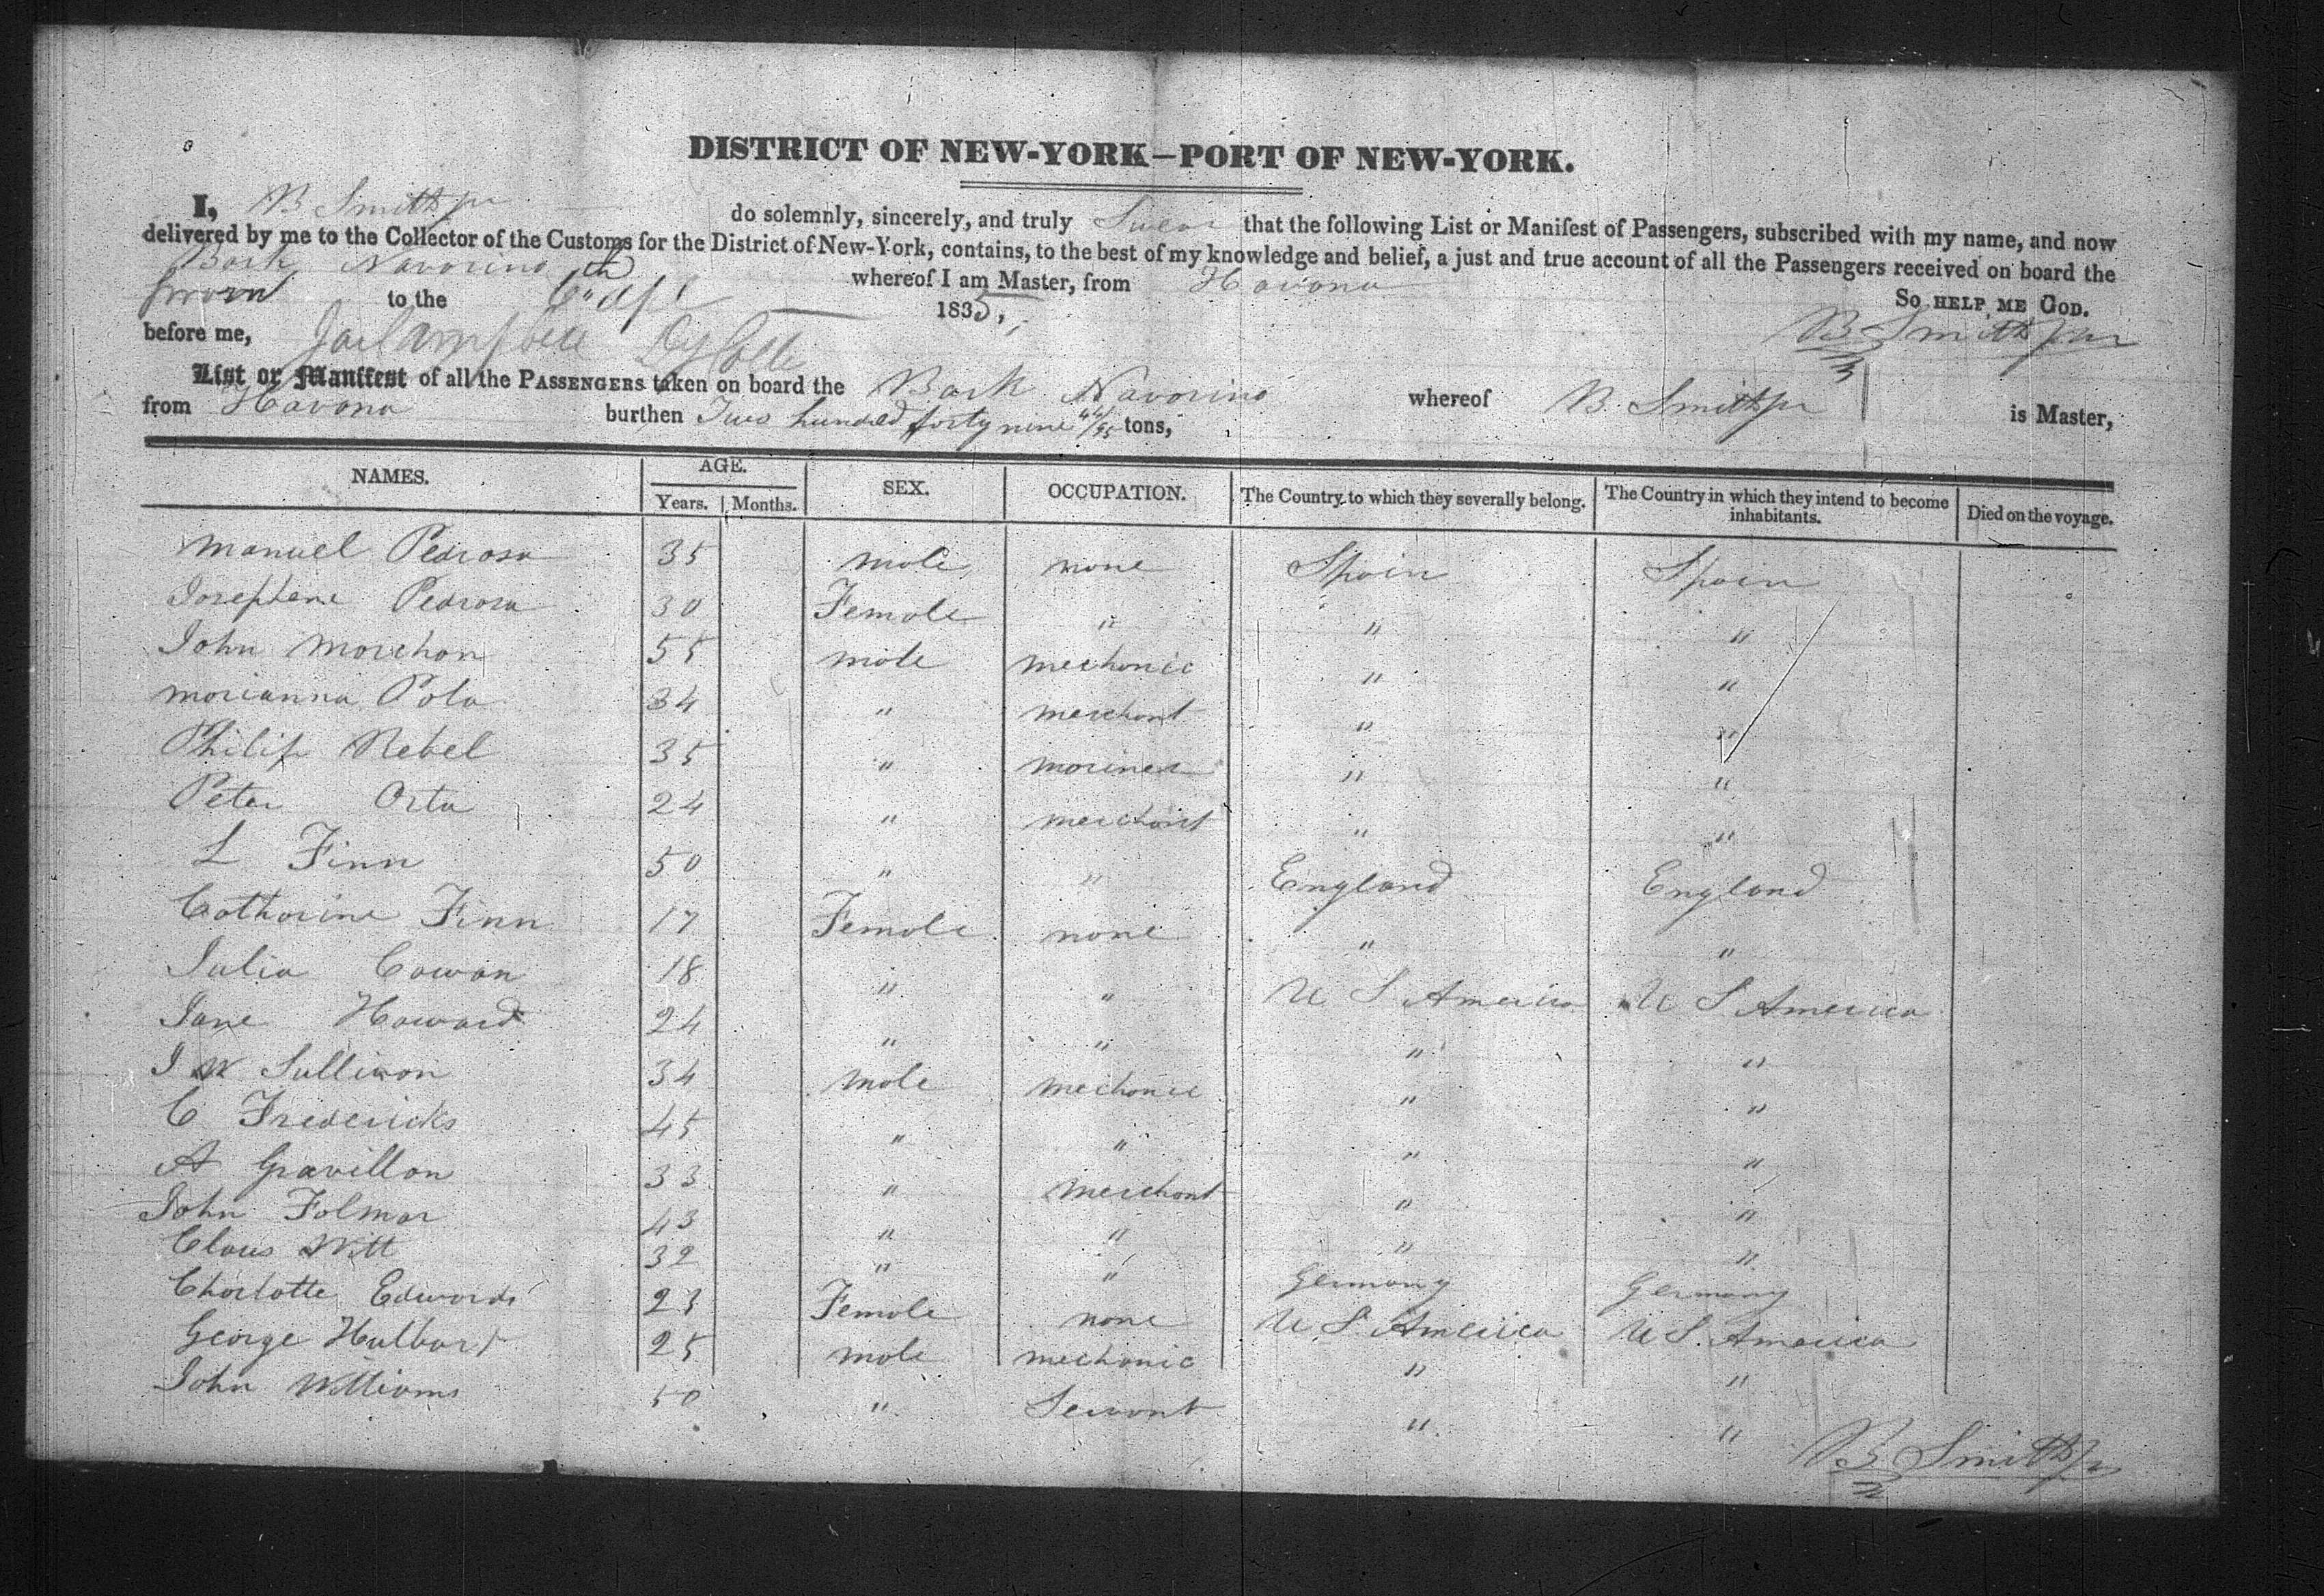 DISTRICT OF NEW-YORK—PORT OF NEW-YORK.
I, B Smith Jur do solemnly, sincerely, and truly Swear that the following List or Manifest of Passengers, subscribed with my name, and now
delivered by me to the Collector of the Customs for the District of New-York, contains, to the best of my knowledge and belief, a just and true account of all the Passengers received on board the
Bark Navorino whereof I am Master, from Havana
Sworn to the 6th 1835, So HELP ME GOD.
before me, Jas Campbell Dy Coll B Smith Jur
List or Manifest of all the PASSENGERS taken on board the Bark Navorino whereof B. Smith Jr is Master,
from Havana burthen Two hundred forty nine 44/95 tons,
NAMES. AGE. SEX. OCCUPATION. The Country to which they severally belong. The Country in which they intend to become inhabitants. Died on the voyage.
Years. Months.
Manuel Pedrosa 35 male none Spain Spain
Josephene Pedrosa 30 Female " " "
John Marchan 55 male mechanic " "
Marianna Pola 34 " merchant " "
Philip Rebel 35 " mariner " "
Peter Orta 24 " merchant " "
L Finn 50 " " England England
Catharine Finn 17 Female none " "
Julia Cowan 18 " " U S America U S America
Jane Howard 24 " " " "
J W Sullivan 34 male mechanic " "
C Fredericks 45 " " " "
A Gravillon 33 " merchant " "
John Folmar 43 " " " "
Claus Witt 32 " " Germany Germany
Charlotte Edwards 23 Female none U S America U S. America
George Hulbart 25 male mechanic " "
John Williams 50 " Servant " "
B Smith Jr